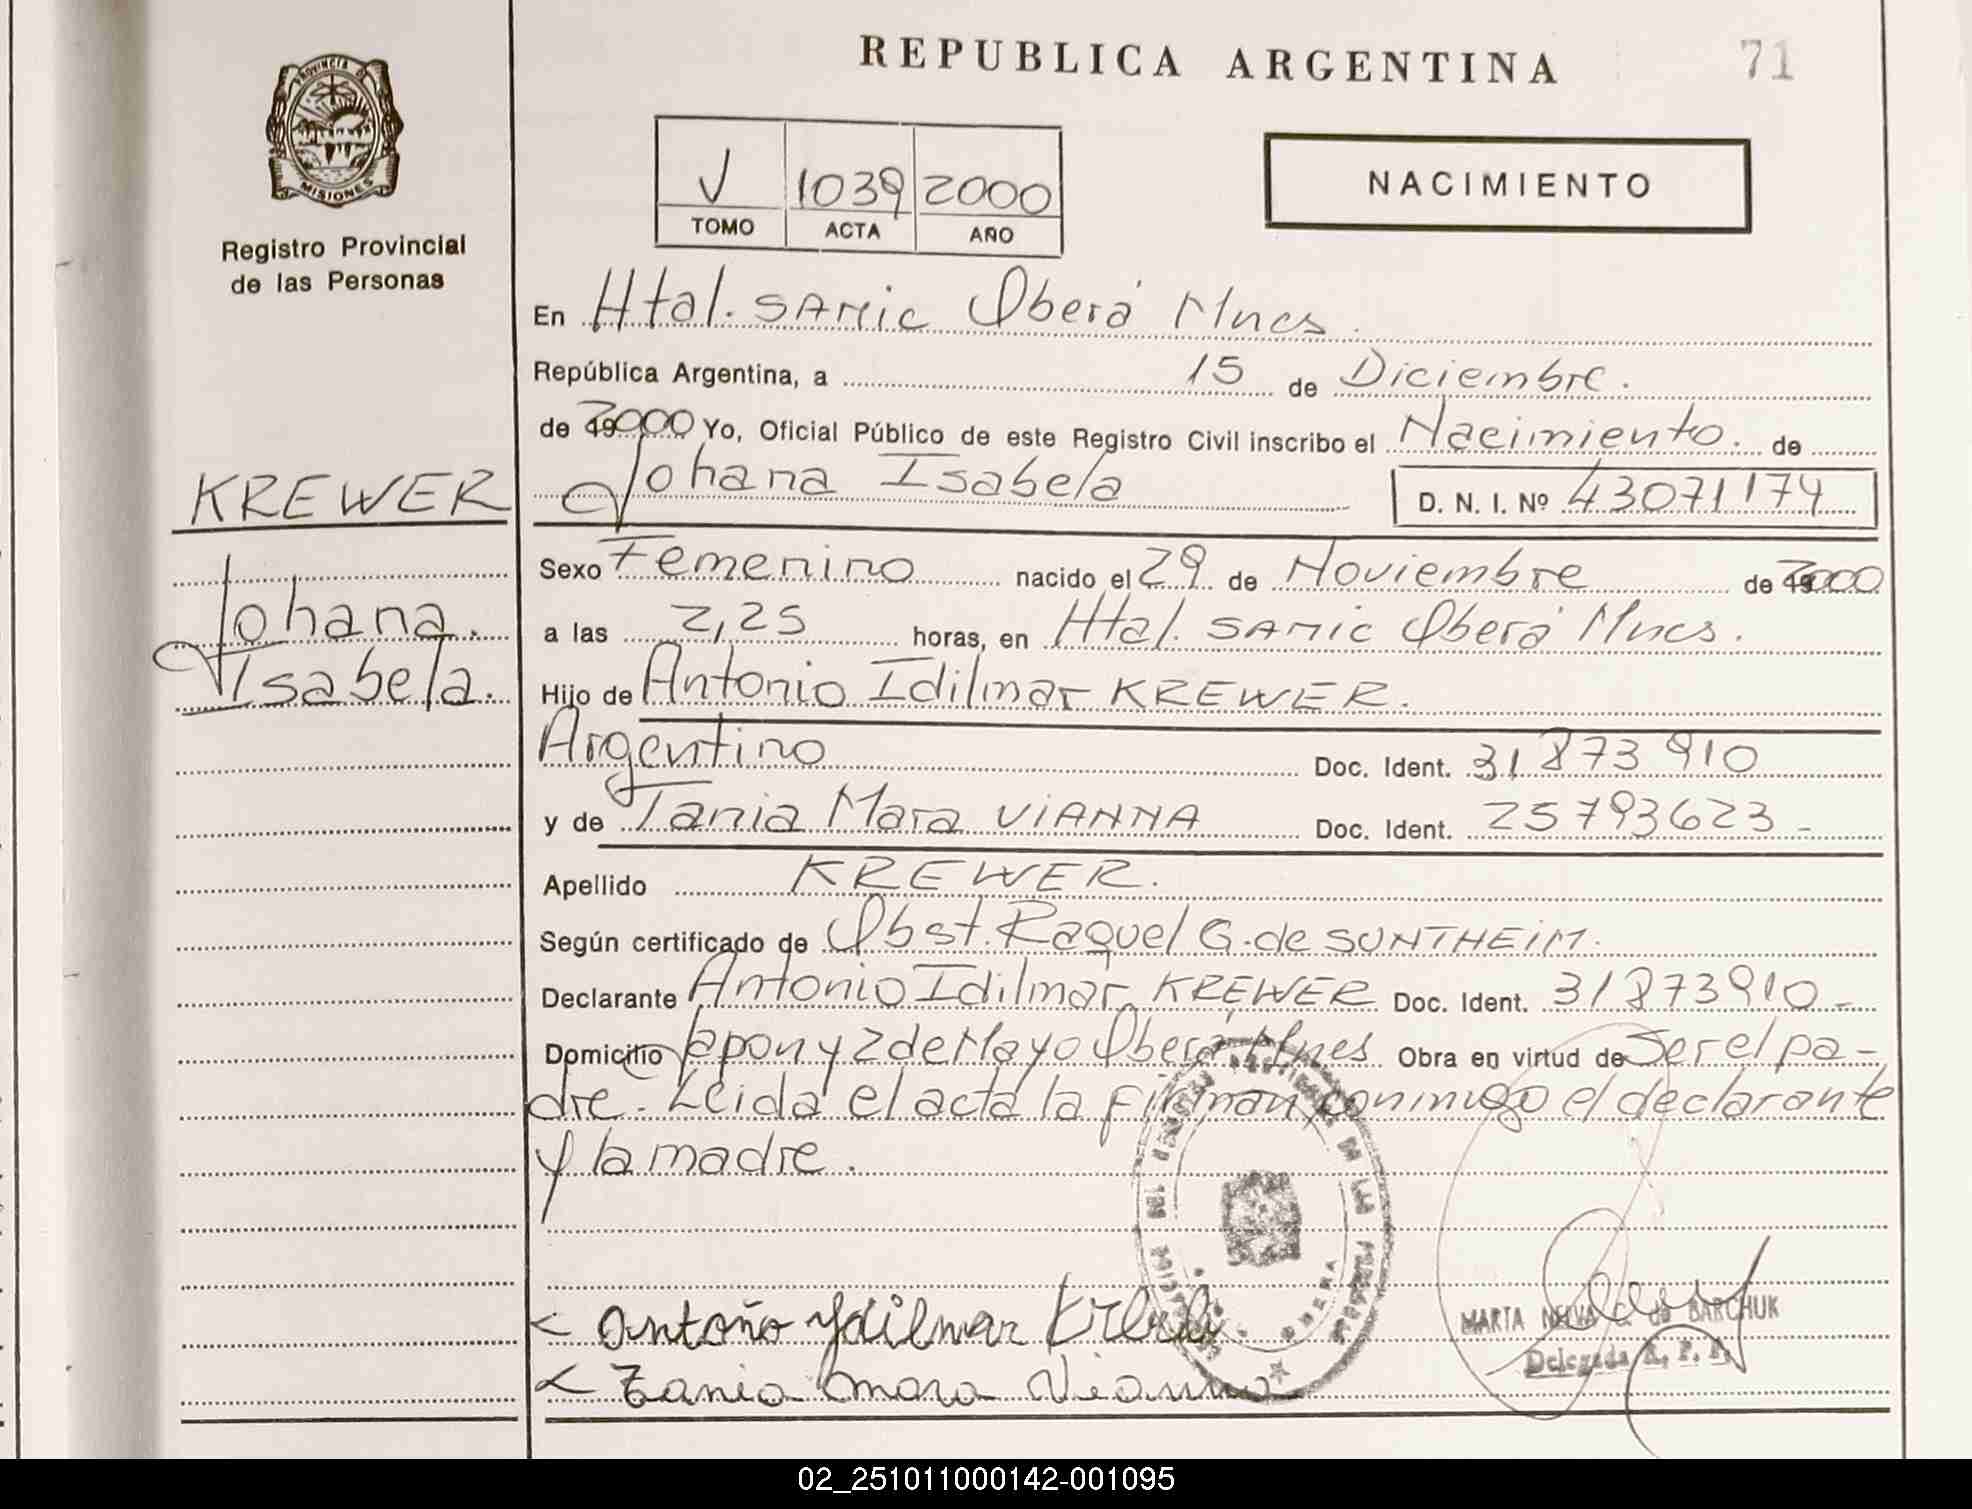 REPUBLICA ARGENTINA
71
PROVINCIA D
MISIONES
Registro Provincial
de las Personas
V 1039 2000
TOMO ACTA AÑO
NACIMIENTO
En Htal. SAMIC Oberá Mnes.
República Argentina, a 15 de Diciembre.
de 2000 Yo, Oficial Público de este Registro Civil inscribo el Nacimiento. de
Johana Isabela D. N. I. Nº 43071174
KREWER
Johana.
Isabela.
Sexo Femenino nacido el 29 de Noviembre de 2000
a las 2,25 horas, en Htal. SAMIC Oberá Mnes.
Hijo de Antonio Idilmar KREWER.
Argentino Doc. Ident. 31873910
y de Tania Mara VIANNA Doc. Ident. 25793623-
Apellido KREWER.
Según certificado de Obst. Raquel G. de SONTHEIM.
Declarante Antonio Idilmar KREWER Doc. Ident. 31873910-
Domicilio Japon y 2 de Mayo Oberá Mnes Obra en virtud de Ser el pa-
dre. Leida el acta la firman conmigo el declarante
y la madre.
OBERA
antoño ydilmar
MARTA NELVA de BARCHUK
Delegada R. P. P.
Tania mara Vianna
02_251011000142-001095